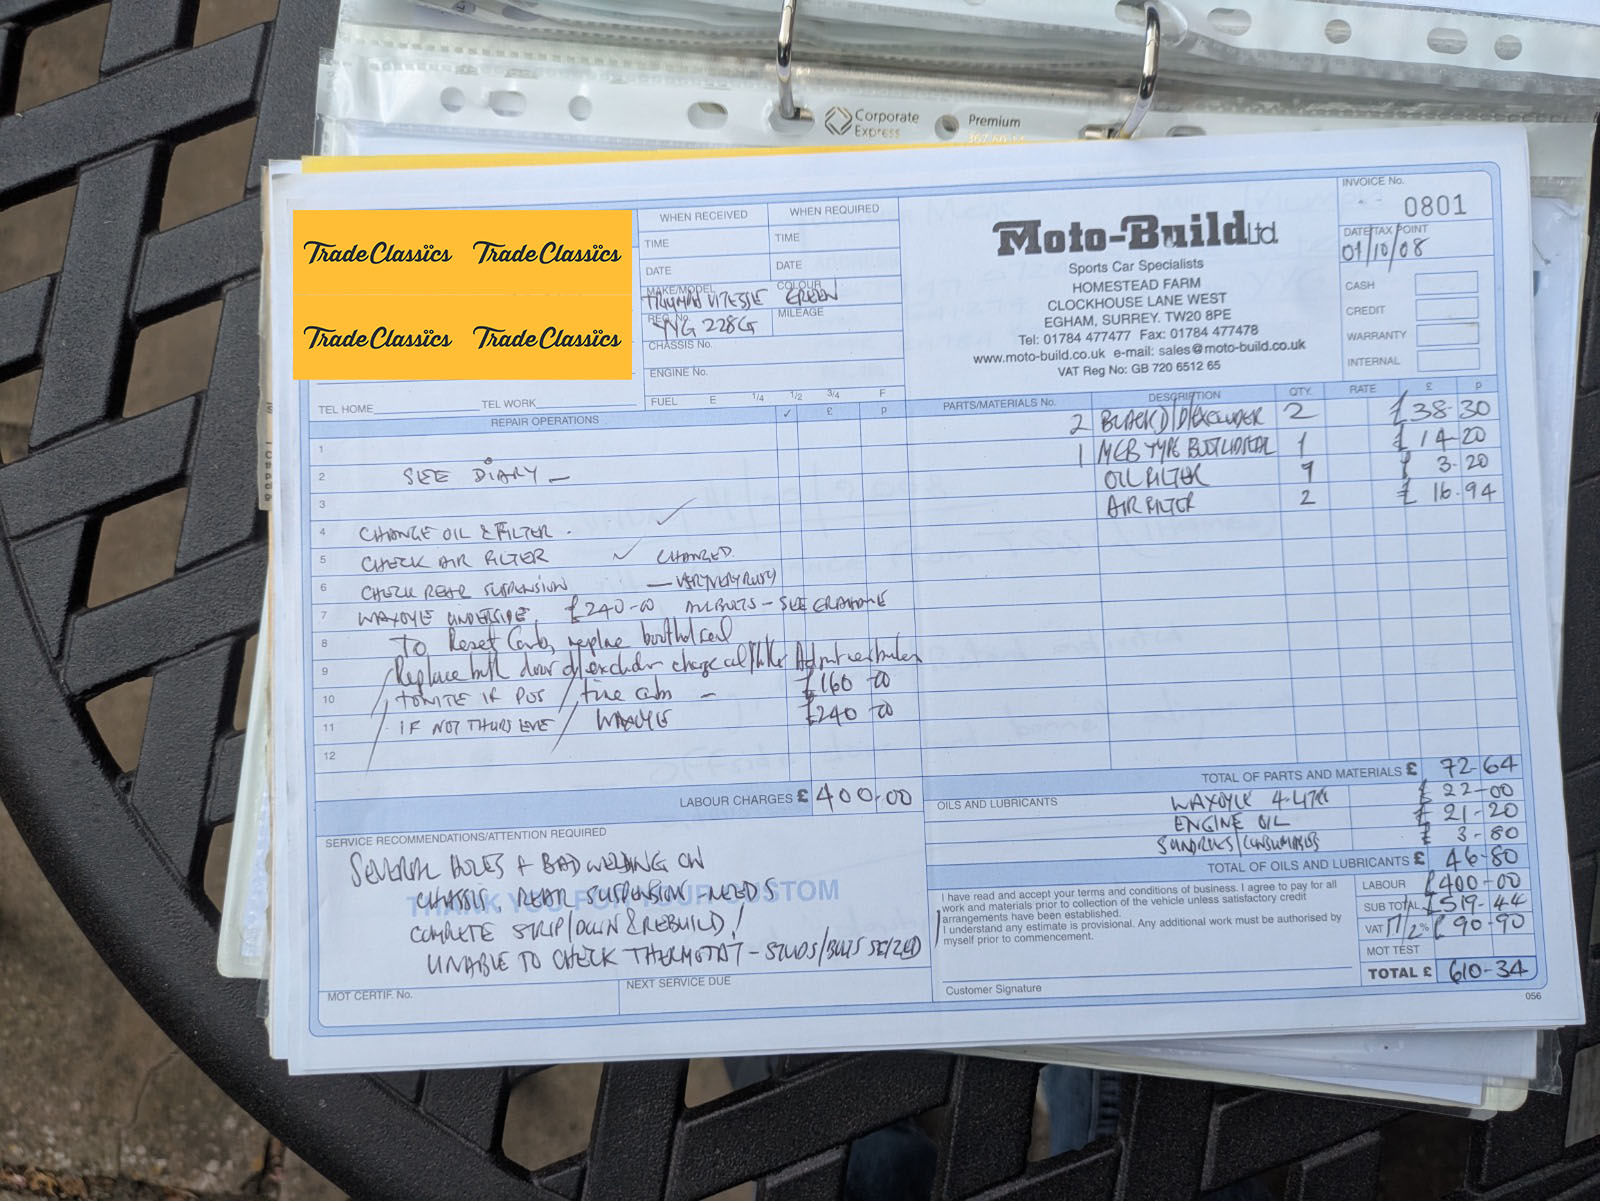 Corporate Express
Premium
TradeClassics TradeClassics
TradeClassics TradeClassics
WHEN RECEIVED WHEN REQUIRED
TIME TIME
DATE DATE
MAKE/MODEL COLOUR
TRIUMPH VITESSE GREEN
REG. No. 228G MILEAGE
CHASSIS No.
ENGINE No.
FUEL E 1/4 1/2 3/4 F
TEL HOME TEL WORK
Moto-Build Ltd.
Sports Car Specialists
HOMESTEAD FARM
CLOCKHOUSE LANE WEST
EGHAM, SURREY. TW20 8PE
Tel: 01784 477477 Fax: 01784 477478
www.moto-build.co.uk e-mail: sales@moto-build.co.uk
VAT Reg No: GB 720 6512 65
INVOICE No.
0801
DATE/TAX POINT
01/10/08
CASH
CREDIT
WARRANTY
INTERNAL
REPAIR OPERATIONS ✓ £ p
1
2 SEE DIARY —
3
4 CHANGE OIL & FILTER. ✓
5 CHECK AIR FILTER ✓ CHANGED
6 CHECK REAR SUSPENSION — VERY VERY RUSTY
7 WAXOYLE UNDERSIDE £240-00 ALL BOLTS - SEE GRAHAME
8 To Reset Carbs, replace boot lid seal
9 Replace both door d/excluder change oil/filter
10 TONITE IF POS / tune carbs — £160 00
11 IF NOT THURS EVE / WAXOYLE £240 00
12
LABOUR CHARGES £ 400.00
PARTS/MATERIALS No. DESCRIPTION QTY. RATE £ p
2 BLACK D/EXCLUDER 2 £38-30
1 MGB TYPE BOOTLID SEAL 1 £14-20
OIL FILTER 1 £3-20
AIR FILTER 2 £16-94
TOTAL OF PARTS AND MATERIALS £ 72-64
OILS AND LUBRICANTS WAXOYLE 4-LTR £22-00
ENGINE OIL £21-20
SUNDRIES/CONSUMABLES £3-80
TOTAL OF OILS AND LUBRICANTS £ 46-80
SERVICE RECOMMENDATIONS/ATTENTION REQUIRED
SEVERAL HOLES + BAD WELDING ON
CHASSIS. REAR SUSPENSION NEEDS
THANK YOU FOR YOUR CUSTOM
COMPLETE STRIP/DOWN & REBUILD!
UNABLE TO CHECK THERMOSTAT - STUDS/BOLTS SEIZED
MOT CERTIF. No. NEXT SERVICE DUE
I have read and accept your terms and conditions of business. I agree to pay for all
work and materials prior to collection of the vehicle unless satisfactory credit
arrangements have been established.
I understand any estimate is provisional. Any additional work must be authorised by
myself prior to commencement.
Customer Signature
LABOUR £400-00
SUB TOTAL £519-44
VAT 17/2 % £90-90
MOT TEST
TOTAL £ 610-34
056